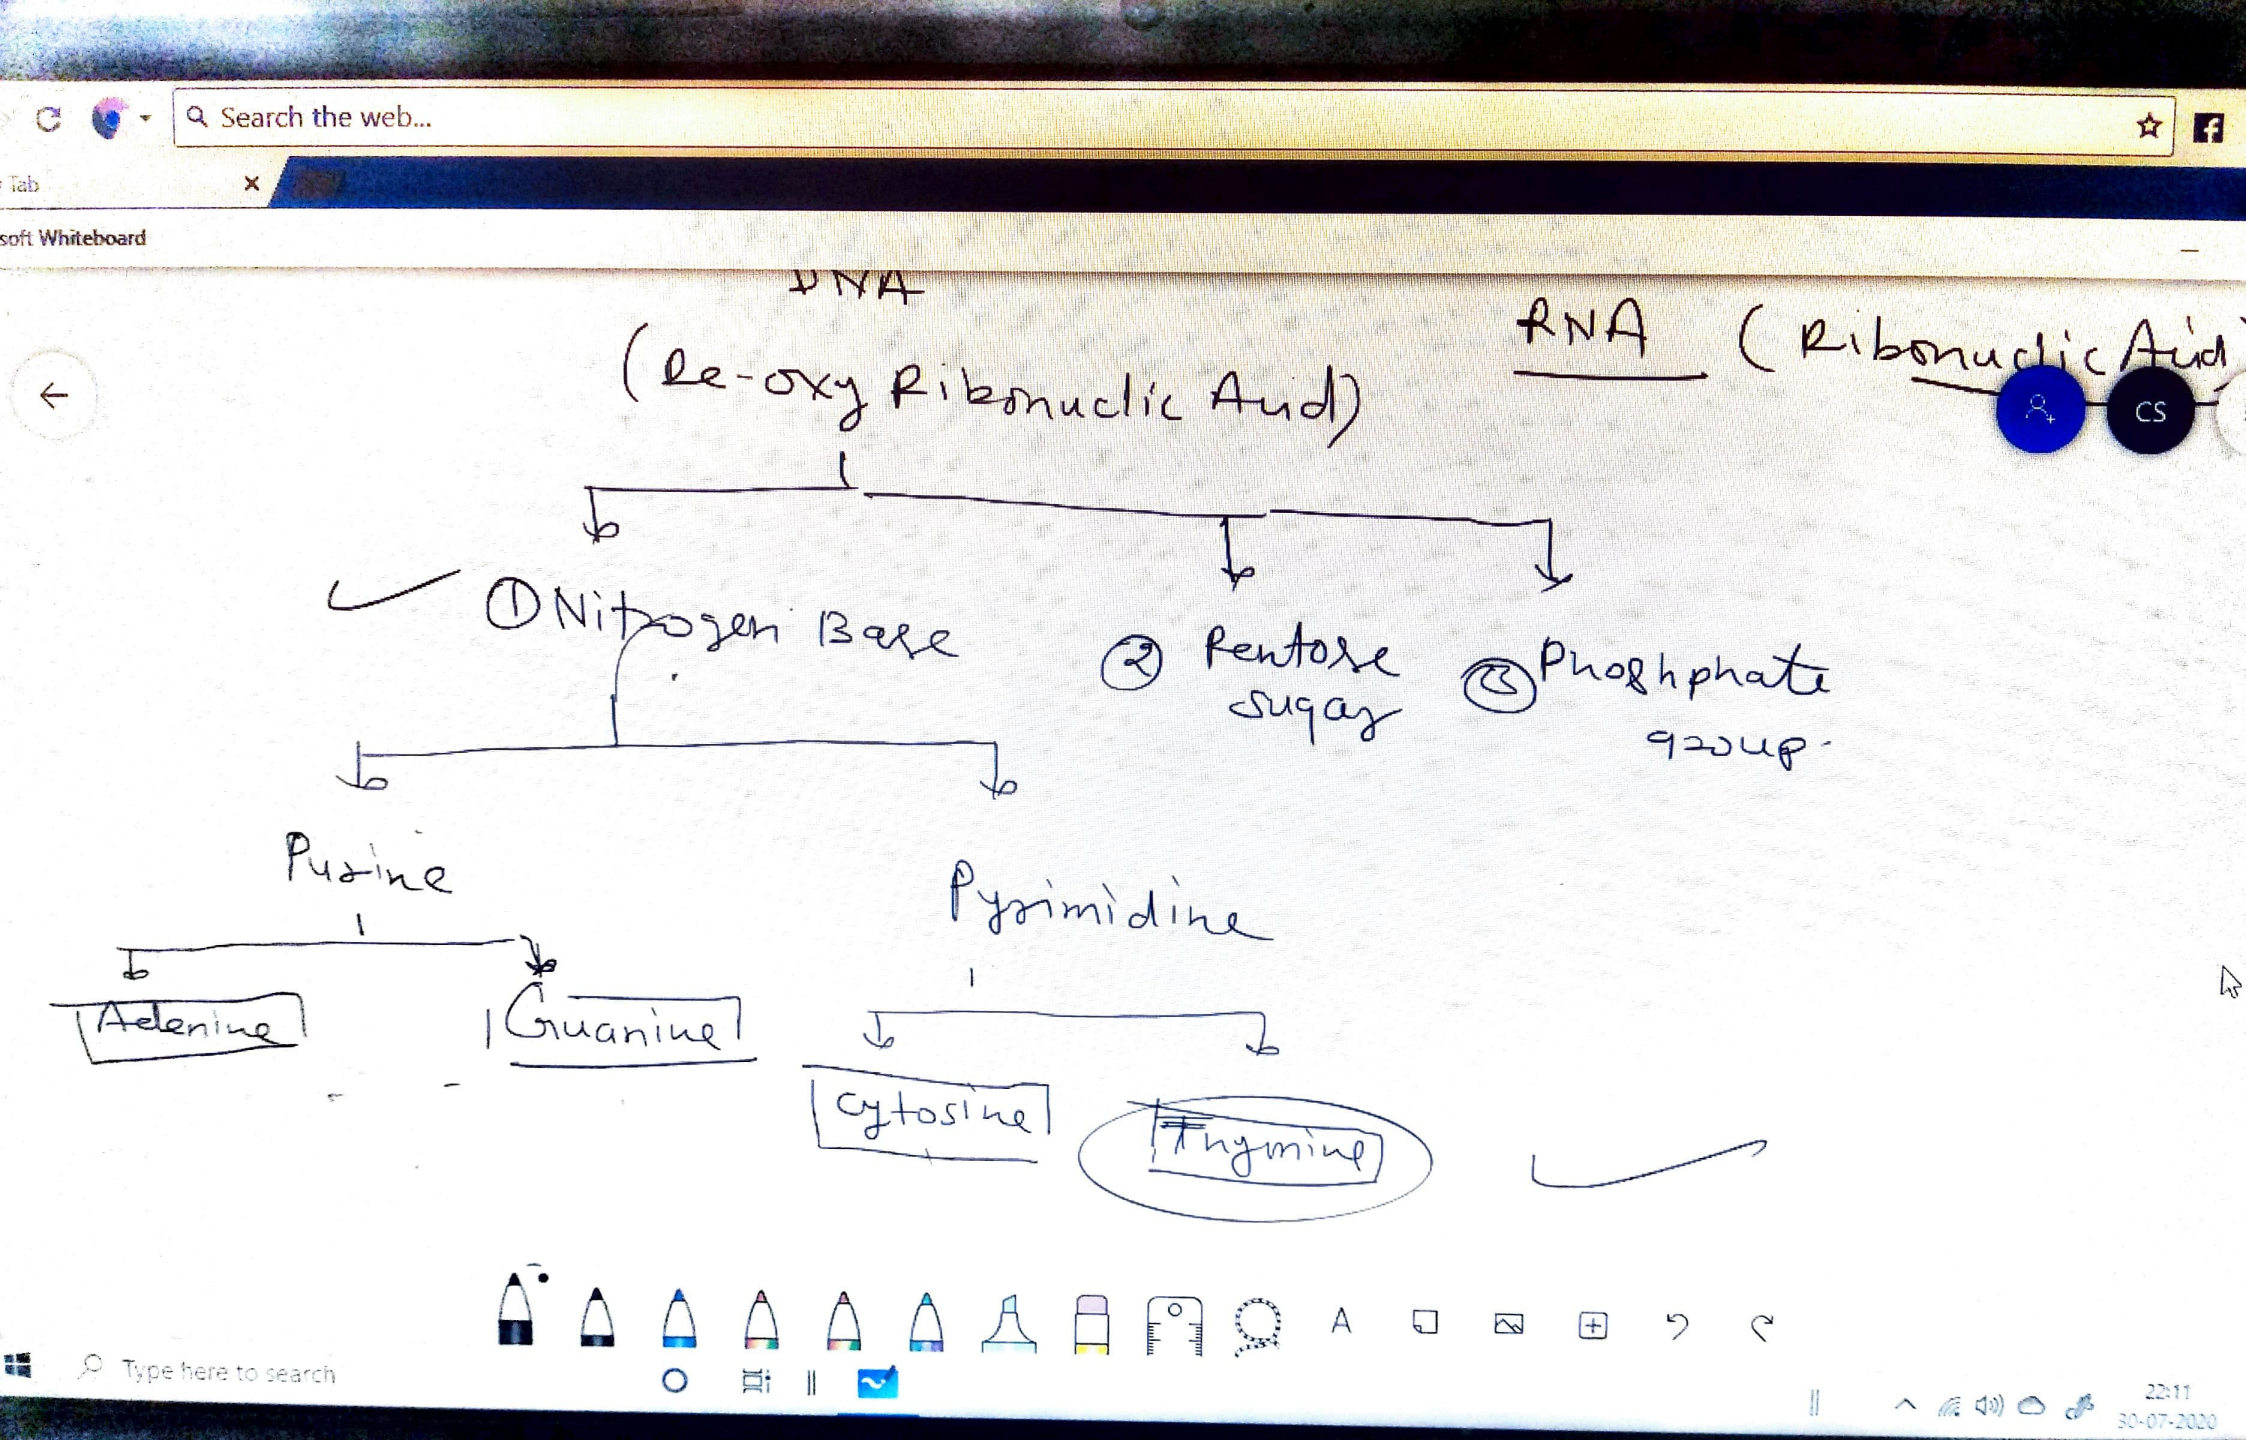 Search the web...
Tab
soft Whiteboard
DNA
(De-oxy Ribonuclic Acid)
RNA (Ribonuclic Acid)
CS
① Nitrogen Base
② Pentose
sugar
③ Phoshphate
group.
Purine
Pyrimidine
Adenine
Guanine
Cytosine
Thymine
A
Type here to search
22:11
30-07-2020